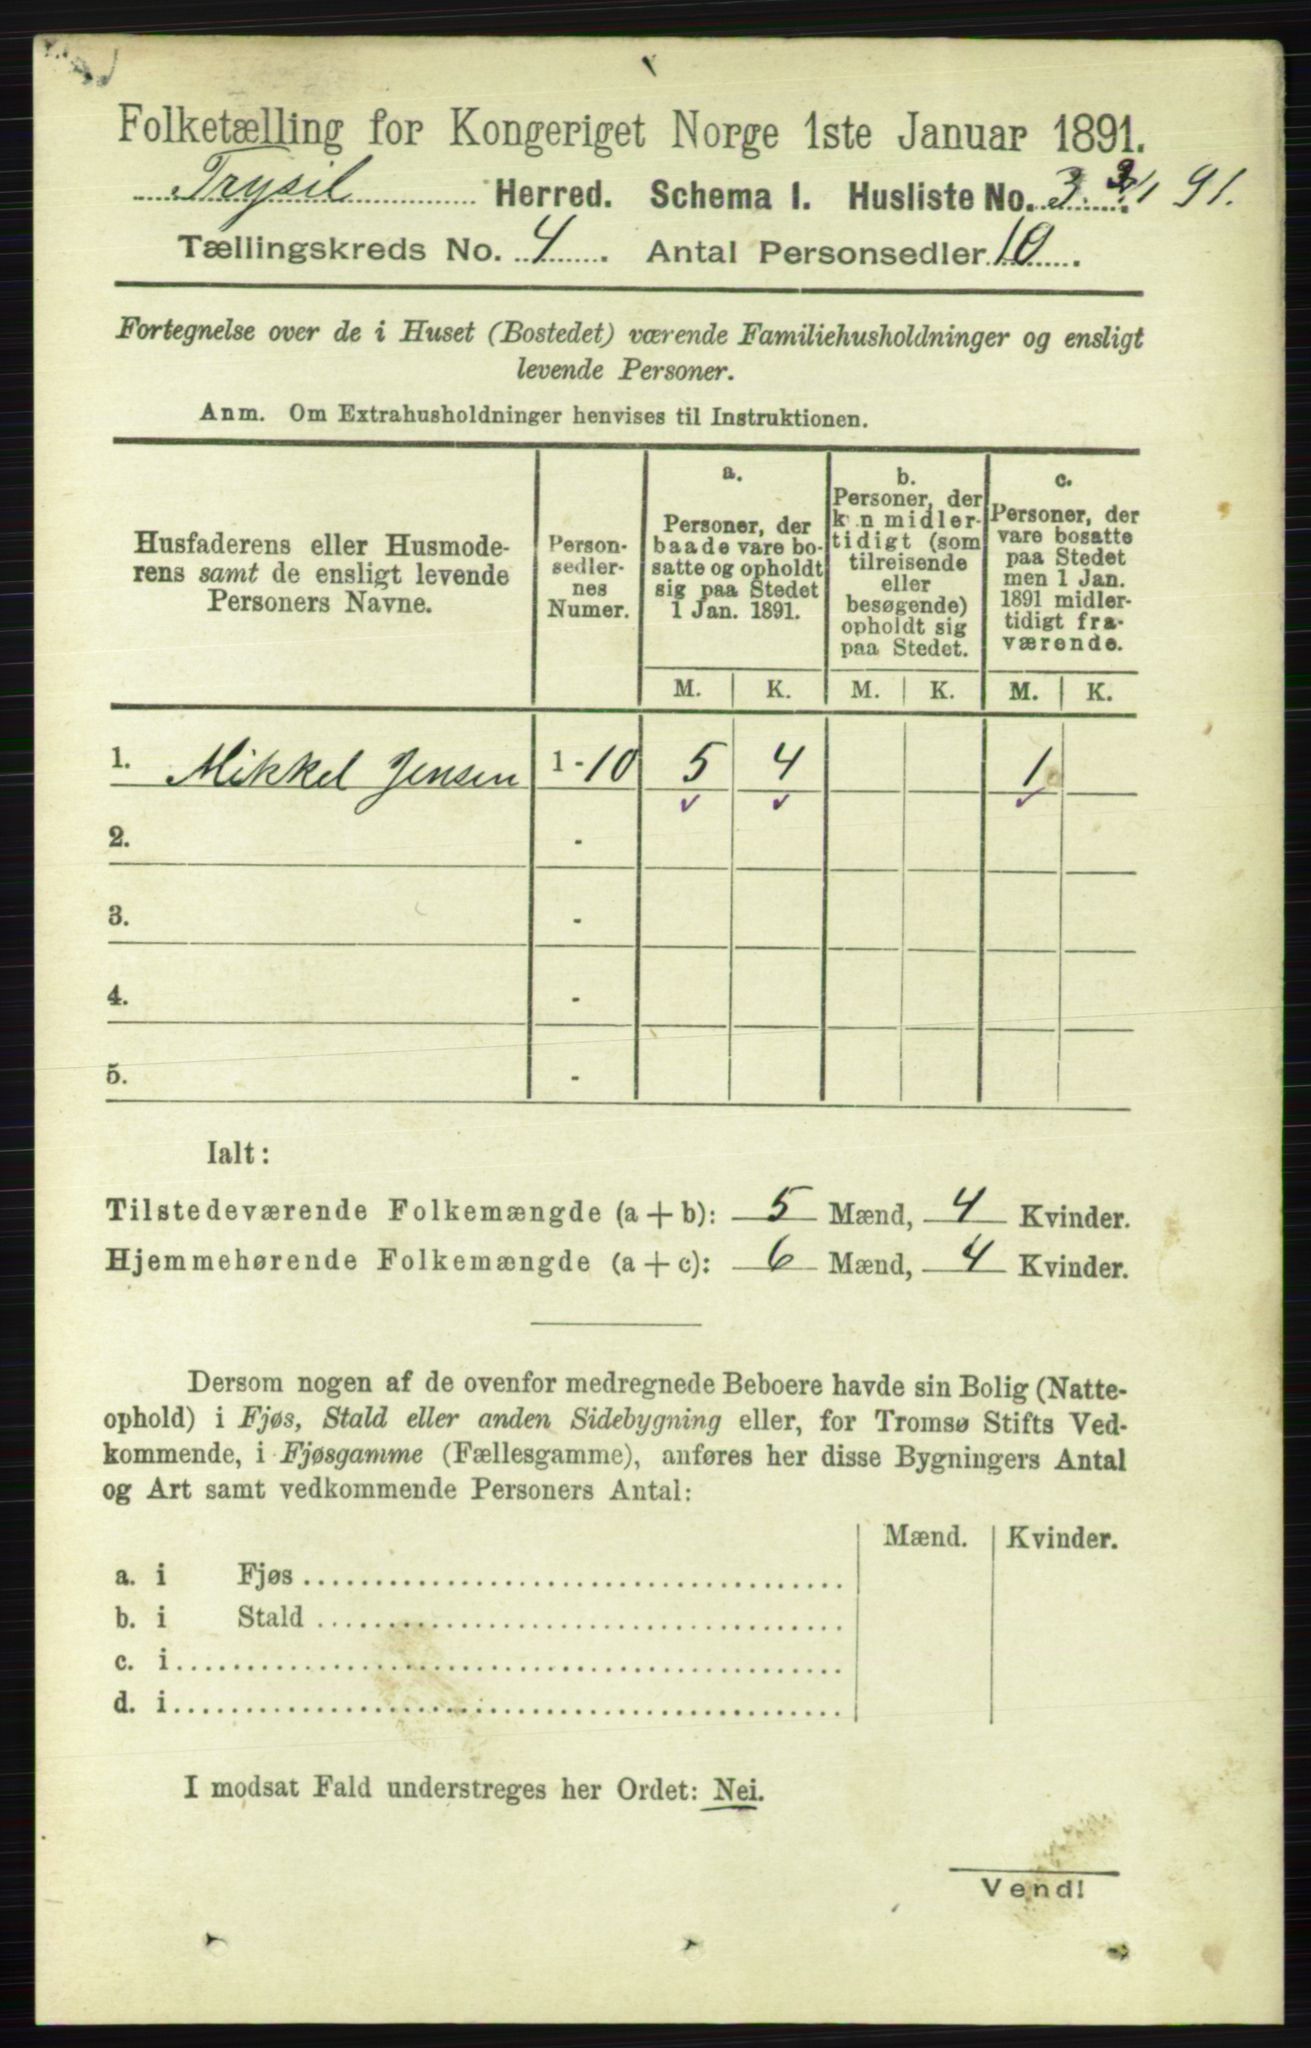 Folketælling for Kongeriget Norge 1ste Januar 1891.
Trysil Herred. Schema I. Husliste No. 3. 91.
Tællingskreds No. 4. Antal Personsedler 10.
Fortegnelse over de i Huset (Bostedet) værende Familiehusholdninger og ensligt
levende Personer.
Anm. Om Extrahusholdninger henvises til Instruktionen.
Husfaderens eller Husmode-
rens samt de ensligt levende
Personers Navne.
Person-
sedler-
nes
Numer.
a.
Personer, der
baade vare bo-
satte og opholdt
sig paa Stedet
1 Jan. 1891.
b.
Personer, der
kun midler-
tidigt (som
tilreisende
eller
besøgende)
opholdt sig
paa Stedet.
c.
Personer, der
vare bosatte
paa Stedet
men 1 Jan.
1891 midler-
tidigt fra-
værende.
M. K. M. K. M. K.
1. Mikkel Jensen 1-10 5 4 1
2. -
3. -
4. -
5. -
Ialt:
Tilstedeværende Folkemængde (a+b): 5 Mænd, 4 Kvinder.
Hjemmehørende Folkemængde (a+c): 6 Mænd, 4 Kvinder.
Dersom nogen af de ovenfor medregnede Beboere havde sin Bolig (Natte-
ophold) i Fjøs, Stald eller anden Sidebygning eller, for Tromsø Stifts Ved-
kommende, i Fjøsgamme (Fællesgamme), anføres her disse Bygningers Antal
og Art samt vedkommende Personers Antal:
Mænd. Kvinder.
a. i Fjøs
b. i Stald
c. i
d. i
I modsat Fald understreges her Ordet: Nei.
Vend!